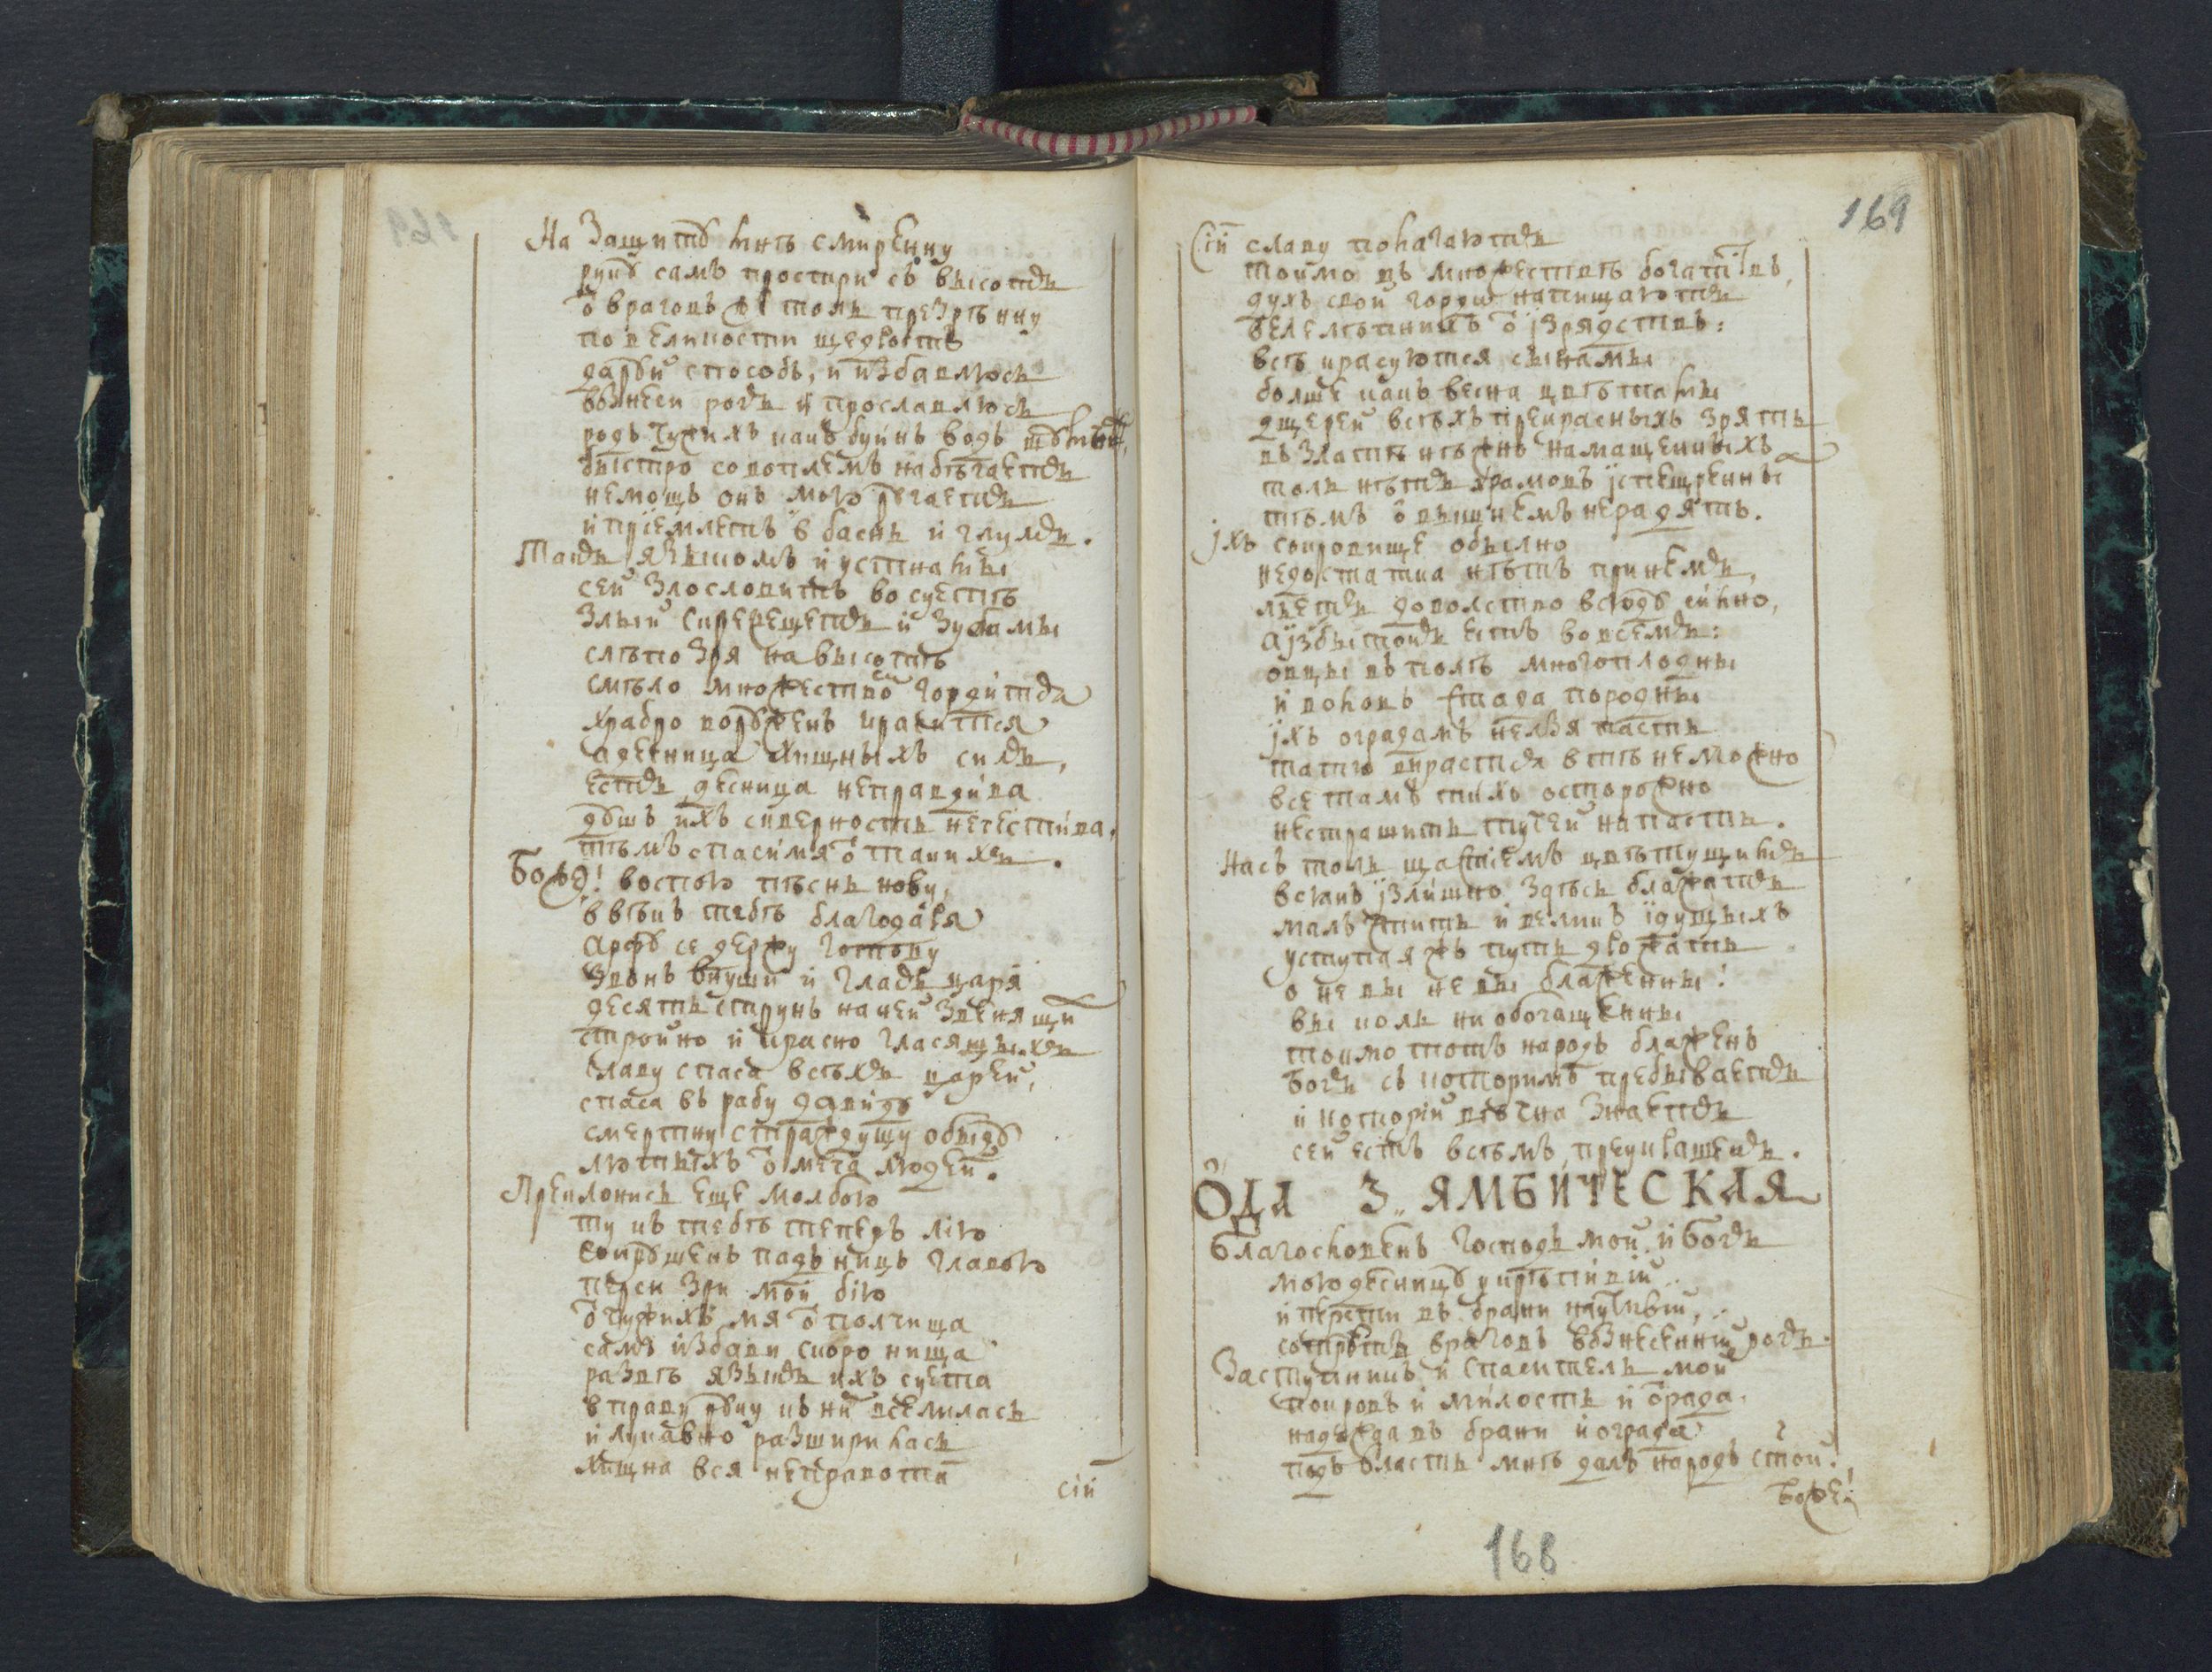 На Защитꙋ мнѣ смиренну
рукꙋ самъ простри съ высотъ
ѿ враговъ толь презрѣнну
по великости щедротъ
даруй способъ, и избавлюсь
вознеси рогъ и прославлюсь
родъ чужихъ какъ буйнъ водъ шꙋмный
быстро со воплемъ набѣгаетъ
немощь онъ мою ругаетъ
и прїемлетъ в баснь и глумъ.
Такъ языкомъ и устнами
сей злословитъ во суетѣ
Злый скрежещетъ и Зубами
слѣпо Зря на высотѣ
смѣло множествомъ гордится
храбро воруженъ кракится
а десница хищныхъ силъ,
естъ десница неправдива
душъ ихъ скверность нечестива,
тѣмъ спаси мя ѿ таких.
Боже! воспою пѣснь нову,
ввѣкъ тебѣ благодаря
Арфꙋ се держу готову
Звонъ внуши и гласъ царя
десять струнъ на ней Звенящи
стройно и красно гласящихъ
славу спаса всѣхъ царей,
спаса въ рабу давидꙋ
смертну страждущу обидꙋ
лютыхъ ѿ меча людей.
Преклонись еще молбою
ту къ тебѣ теперь лїю
сокрꙋшенъ падъ ницъ главою
перси Зри мои бїю
ѿ чужихъ мя ѿ полчища
самъ избави скоро нища
развѣ языкъ ихъ суета
вправу рꙋку къ ни вселилась
и лукавно разширилась
хищна вся неправота
сїи
169
Сїи славу полагаютъ
токмо въ множествѣ богатствъ,
духъ свой гордый напищаютъ
велелѣпныхъ ѿ изрядствъ:
всѣ красуются сынами
болше какъ весна цвѣтами
дщерей всѣхъ прекрасныхъ Зрятъ
въ Златѣ нѣжнѣ намащенныхъ
толь нѣтъ храмовъ испещренны
тѣмъ ѿ вышнемъ нерадятъ.
Ихъ сокровище обилно
недостатка нѣтъ при немъ,
льетъ доволство всюдꙋ силно,
а избытокъ естъ во всемъ:
овцы въ полѣ многоплодны
и воловъ стада породны
ихъ оградамъ нельзя пасть
татю вкрастся втѣ неможно
все тамъ тихо осторожно
нестрашитъ тучей напасть.
Насъ толь щастїемъ цвѣтущими
всякъ излишно здѣсь блажатъ
малъ чтитъ и великъ идущыхъ
уступая жъ путь дрожатъ
о не вы не вы блаженны!
вы коль ни обогащенны
токмо тотъ народъ блаженъ
Богъ съ которимъ пребываетъ
и которїй вѣчна Знаетъ
сей естъ всѣмъ преукрашенъ.
ОДА З. ЯМБИЧЕСКАЯ
Благословенъ господь мой и Богъ
мою десницꙋ укрѣпивїй
и персти въ брани научивый,
сотретъ враговъ вознесенный рогъ.
Заступникъ и Спаситель мой
покровъ и милость и ѿрада
надежда въ брани и ограда
подъ власть мнѣ далъ народъ
Боже!
168